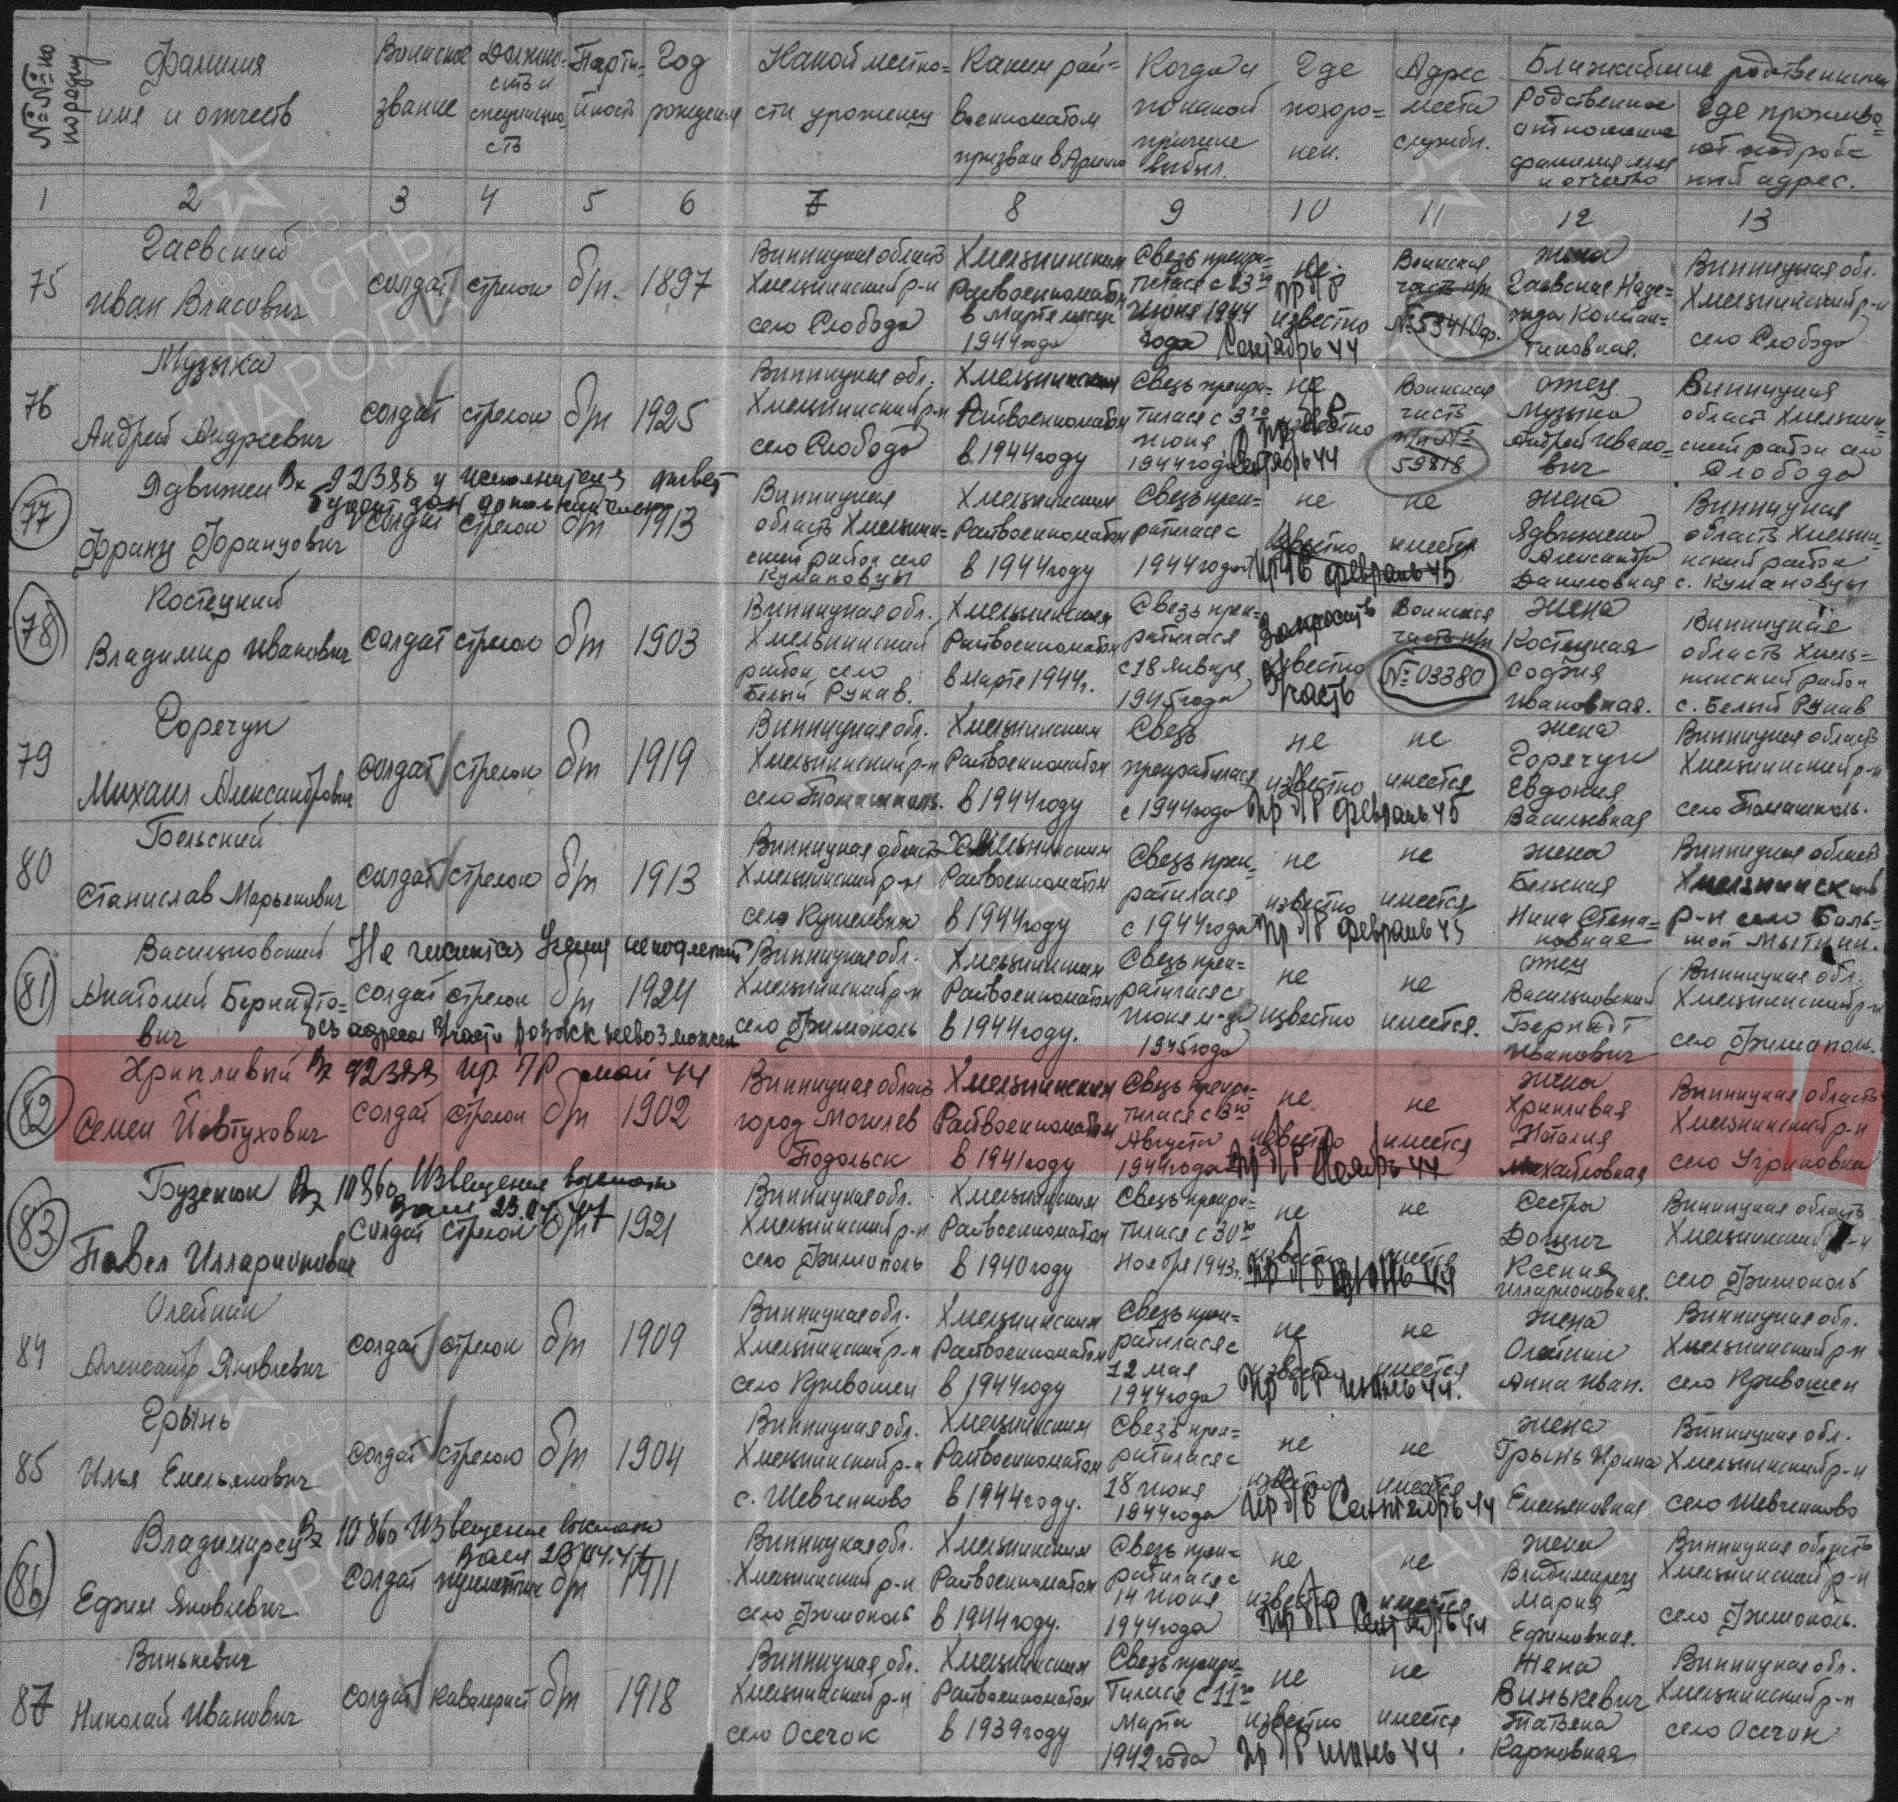 №№ по порядку
Фамилия имя и отчеств
Воинское звание
Должность и специальность
Партийност
Год рождения
Какой местности уроженец
Каким райвоенкоматом призван в Армию
Когда и по какой причине выбыл.
Где похоронен.
Адрес места службы.
Ближайшие родственники
Родственное отношение фамилия имя и отчество
Где проживают подробный адрес.
1 2 3 4 5 6 7 8 9 10 11 12 13
75
Гаевский
Иван Власович
солдат стрелок б/п. 1897
Винницкая область
Хмельнинский р-н
село Слобода
Хмельнинским
Райвоенкоматом
в Марте месяце
1944 года
Связь прекра-
тилася с 23го
Июня 1944
года
не
известно
пр б/в
Сентябрь 44
Воинская
часть п/п
№ 53410 ф.
жена
Гаевская Наде-
жда Констан-
тиновная.
Винницкая обл.
Хмельнинский р-н
село Слобода
76
Музыка
Андрей Андреевич
солдат стрелок б/п 1925
Винницкая обл.
Хмельнинский р-н
село Слобода
Хмельнинским
Райвоенкоматом
в 1944 году
Связь прекра-
тилася с 3го
июня
1944 года
не
известно
Воинская
часть
п/п №
59818
отец
Музыка
Андрей Ивано-
вич
Винницкая
област Хмельнин-
ский район село
Слобода
77
Ядвижен Вх 92388
Франц Францович
солдат стрелок б/п 1913
Винницкая
область Хмельнин-
ский район село
Кумановцы
Хмельнинским
Райвоенкоматом
в 1944 году
Связь прек-
ратилася с
1944 года
не
известно
пр б/в февраль 45
не
имеется
жена
Ядвижена
Александра
Даниловная
Винницкая
область Хмельни-
нский район
с. Кумановцы
78
Костецкий
Владимир Иванович
солдат стрелок б/п 1903
Винницкая обл.
Хмельнинский
район село
Белый Рукав.
Хмельнинским
Райвоенкоматом
в марте 1944 г.
Связь прек-
ратилася
с 18 января
1945 года
Запросить
известно
В/часть
Воинская
часть п/п
№ 03380
жена
Костецкая
София
Ивановная.
Винницкая
область Хмель-
нинский район
с. Белый Рукав
79
Горечун
Михаил Александрович
солдат стрелок б/п 1919
Винницкая обл.
Хмельнинский р-н
село Томашполь.
Хмельнинским
Райвоенкоматом
в 1944 году
Связь
прекратилася
с 1944 года
не
известно
пр б/в февраль 45
не
имеется
жена
Горечун
Евдокия
Васильевная
Винницкая область
Хмельнинский р-н
село Томашполь.
80
Бельский
Станислав Марьянович
солдат стрелок б/п 1913
Винницкая область
Хмельнинский р-н
село Кушелевка
Хмельнинским
Райвоенкоматом
в 1944 году
Связь прек-
ратилася
с 1944 года
не
известно
пр б/в февраль 45
не
имеется
жена
Бельская
Нина Степа-
новная
Винницкая область
Хмельнинский
р-н село Боль-
шой Мытник.
81
Васильковский
Анатолий Бернадто-
вич
Не числится Учету не подлежит
солдат стрелок б/п 1924
без адреса В/части розыск невозможен
Винницкая обл.
Хмельнинский р-н
село Филиополь
Хмельнинским
Райвоенкоматом
в 1944 году.
Связь прек-
ратилася с
Июня м-ца
1945 года
не
известно
не
имеется.
отец
Васильковский
Бернадт
Иванович
Винницкая обл.
Хмельнинский р-н
село Филиополь.
82
Хрипливый Вх 92388 пр. ПР май 44
Семен Йовтухович
солдат стрелок б/п 1902
Винницкая область
город Могилев
Подольск
Хмельнинским
Райвоенкоматом
в 1941 году
Связь прекра-
тилася с 3го
Августа
1944 года
не
известно
пр б/в Ноябрь 44
не
имеется
жена
Хрипливая
Наталия
Михайловная
Винницкая область
Хмельнинский р-н
село Угриновка
83
Бузенюк Вх 10860 Извещение выслано
Павел Илларионович
солдат стрелок б/п 1921
Винницкая обл.
Хмельнинский р-н
село Филиополь
Хмельнинским
Райвоенкоматом
в 1940 году
Связь прекра-
тилася с 30го
Ноября 1943 г.
не
известно
не
имеется
Сестра
Ксения
Илларионовная.
Винницкая область
Хмельнинский р-н
село Филиополь
84
Олейник
Александр Яковлевич
солдат стрелок б/п 1909
Винницкая обл.
Хмельнинский р-н
село Кривошеи
Хмельнинским
Райвоенкоматом
в 1944 году
Связь прек-
ратилася с
12 мая
1944 года
не
известно
не
имеется
жена
Олейник
Анна Иван.
Винницкая обл.
Хмельнинский р-н
село Кривошеи
85
Грынь
Илья Емельянович
солдат стрелок б/п 1904
Винницкая обл.
Хмельнинский р-н
с. Шевченково
Хмельнинским
Райвоенкоматом
в 1944 году.
Связь прек-
ратилася с
18 июня
1944 года
не
известно
пр б/в Сентябрь 44
не
имеется
жена
Грынь Ирина
Емельяновная
Винницкая обл.
Хмельнинский р-н
село Шевченково
86
Владимирец Вх 10860 Извещение выслано
Ефим Яковлевич
солдат б/п 1911
Винницкая обл.
Хмельнинский р-н
село Филиополь
Хмельнинским
Райвоенкоматом
в 1944 году.
Связь прек-
ратилася с
14 июня
1944 года
не
известно
пр б/в Сентябрь 44
не
имеется
жена
Владимирец
Мария
Ефимовная.
Винницкая область
Хмельнинский р-н
село Филиополь.
87
Винькевич
Николай Иванович
солдат кавалерист б/п 1918
Винницкая обл.
Хмельнинский р-н
село Осечок
Хмельнинским
Райвоенкоматом
в 1939 году
Связь прекра-
тилася с 11го
Марта
1942 года
не
известно
пр б/в июнь 44.
не
имеется
жена
Винькевич
Татьяна
Карповная
Винницкая обл.
Хмельнинский р-н
село Осечок
ПАМЯТЬ НАРОДА
1941-1945